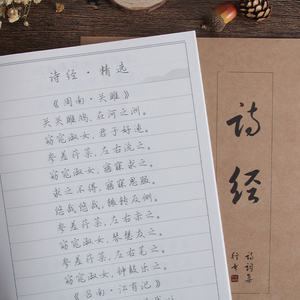 诗经·精选
《周南·关雎》
关关雎鸠,在河之洲。
窈窕淑女,君子好逑。
参差荇菜,左右流之。
窈窕淑女,寤寐求之。
求之不得,寤寐思服。
悠哉悠哉,辗转反侧。
参差荇菜,左右采之。
窈窕淑女,琴瑟友之。
参差荇菜,左右芼之。
窈窕淑女,钟鼓乐之。
《召南·江有汜》
诗经